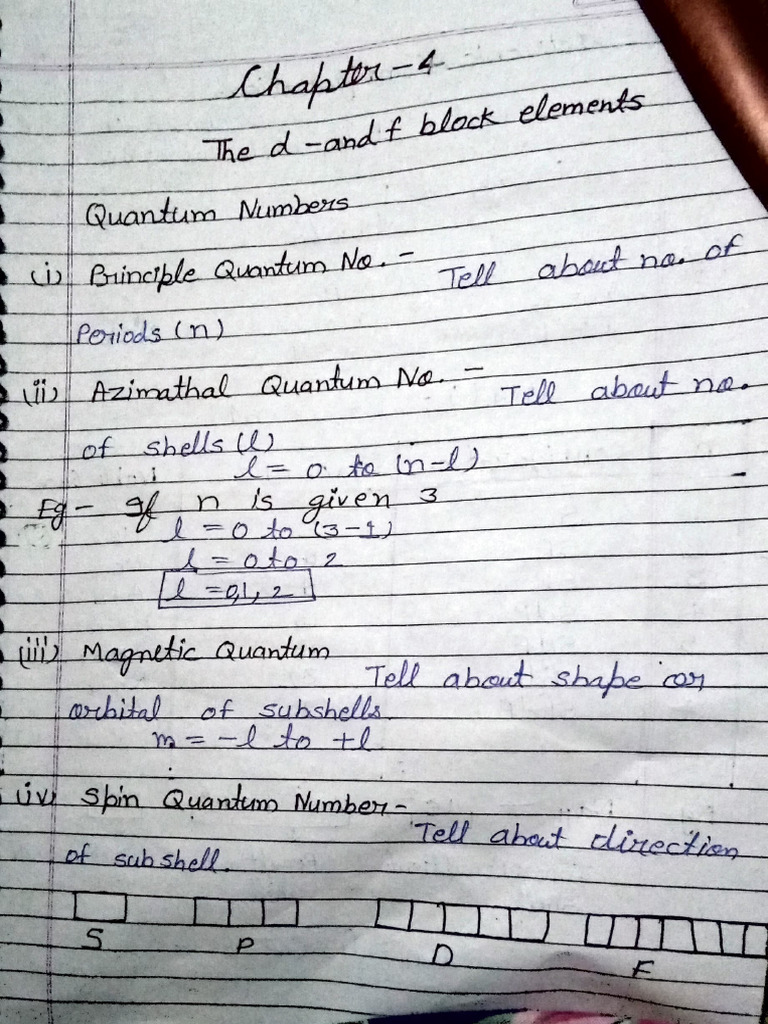 Chapter - 4
The d - and f block elements
Quantum Numbers
(i) Principle Quantum No. - Tell about no. of
Periods (n)
(ii) Azimathal Quantum No. - Tell about no.
of shells (l)
l = 0 to (n-l)
Eg - If n is given 3
l = 0 to (3-1)
l = 0 to 2
l = 0,1, 2
(iii) Magnetic Quantum Tell about shape or
orbital of subshells.
m = -l to +l
(iv) Spin Quantum Number - Tell about direction
of subshell.
S P D F